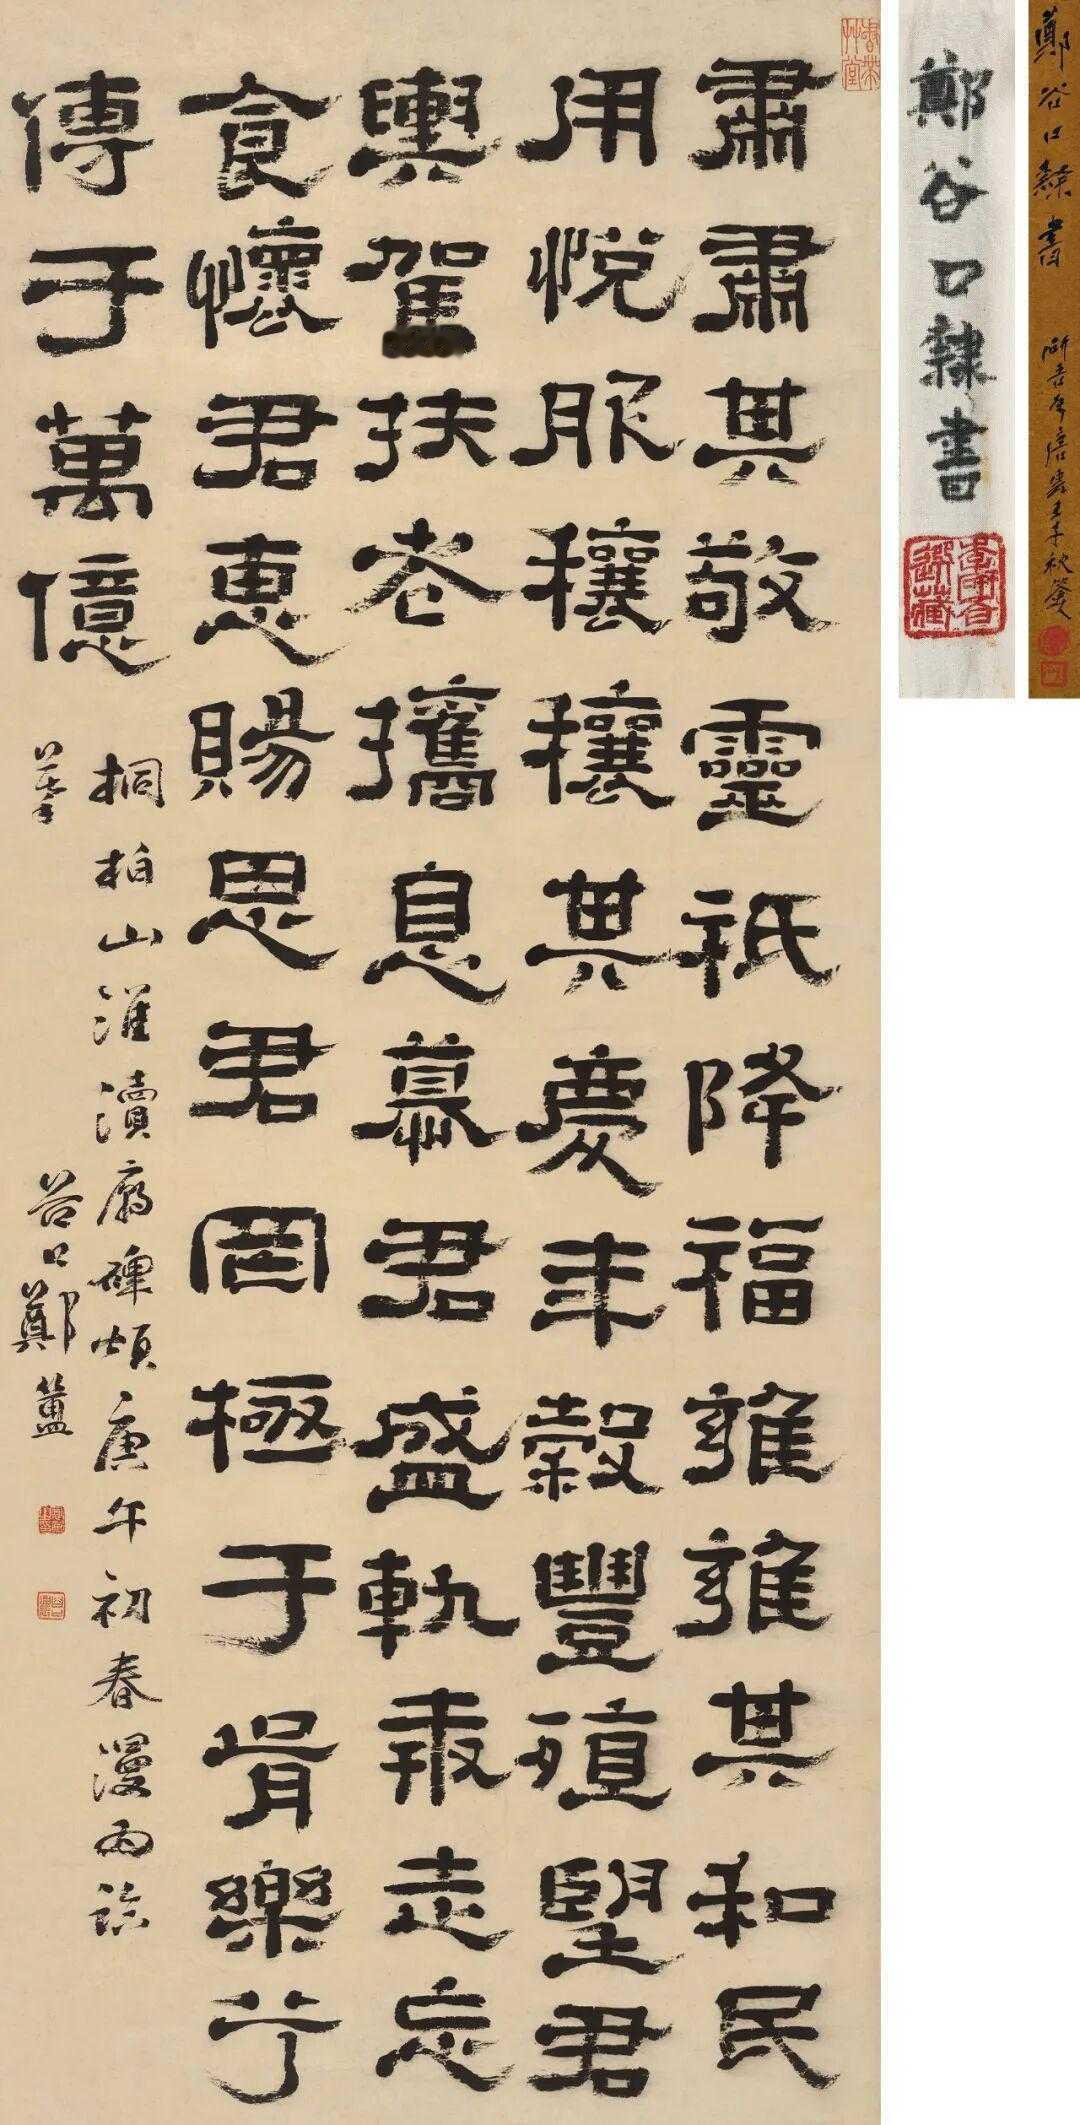 肅肅其敬靈祇降福雝雝其和民
用悅服穰穰其慶年穀豐殖望君
輿駕扶老攜息慕君盛軌奔走忘
食懷君惠賜思君罔極于胥樂兮
傳于萬億
桐柏山淮瀆廟碑頌庚午初春漫為
谷口鄭簠
鄭谷口隸書
鄭谷口隸書